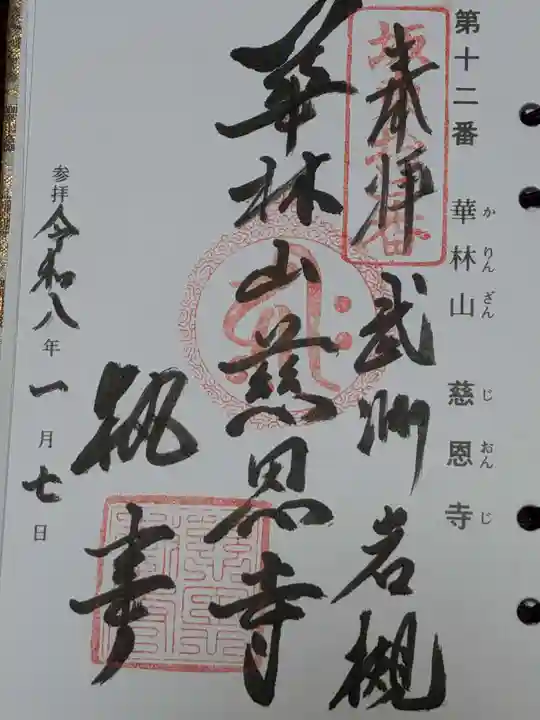 第十二番 華林山 慈恩寺
かりんざん じおんじ
奉拝 武州岩槻
坂東十二番
華林山慈恩寺
執事
参拝 令和八年一月七日